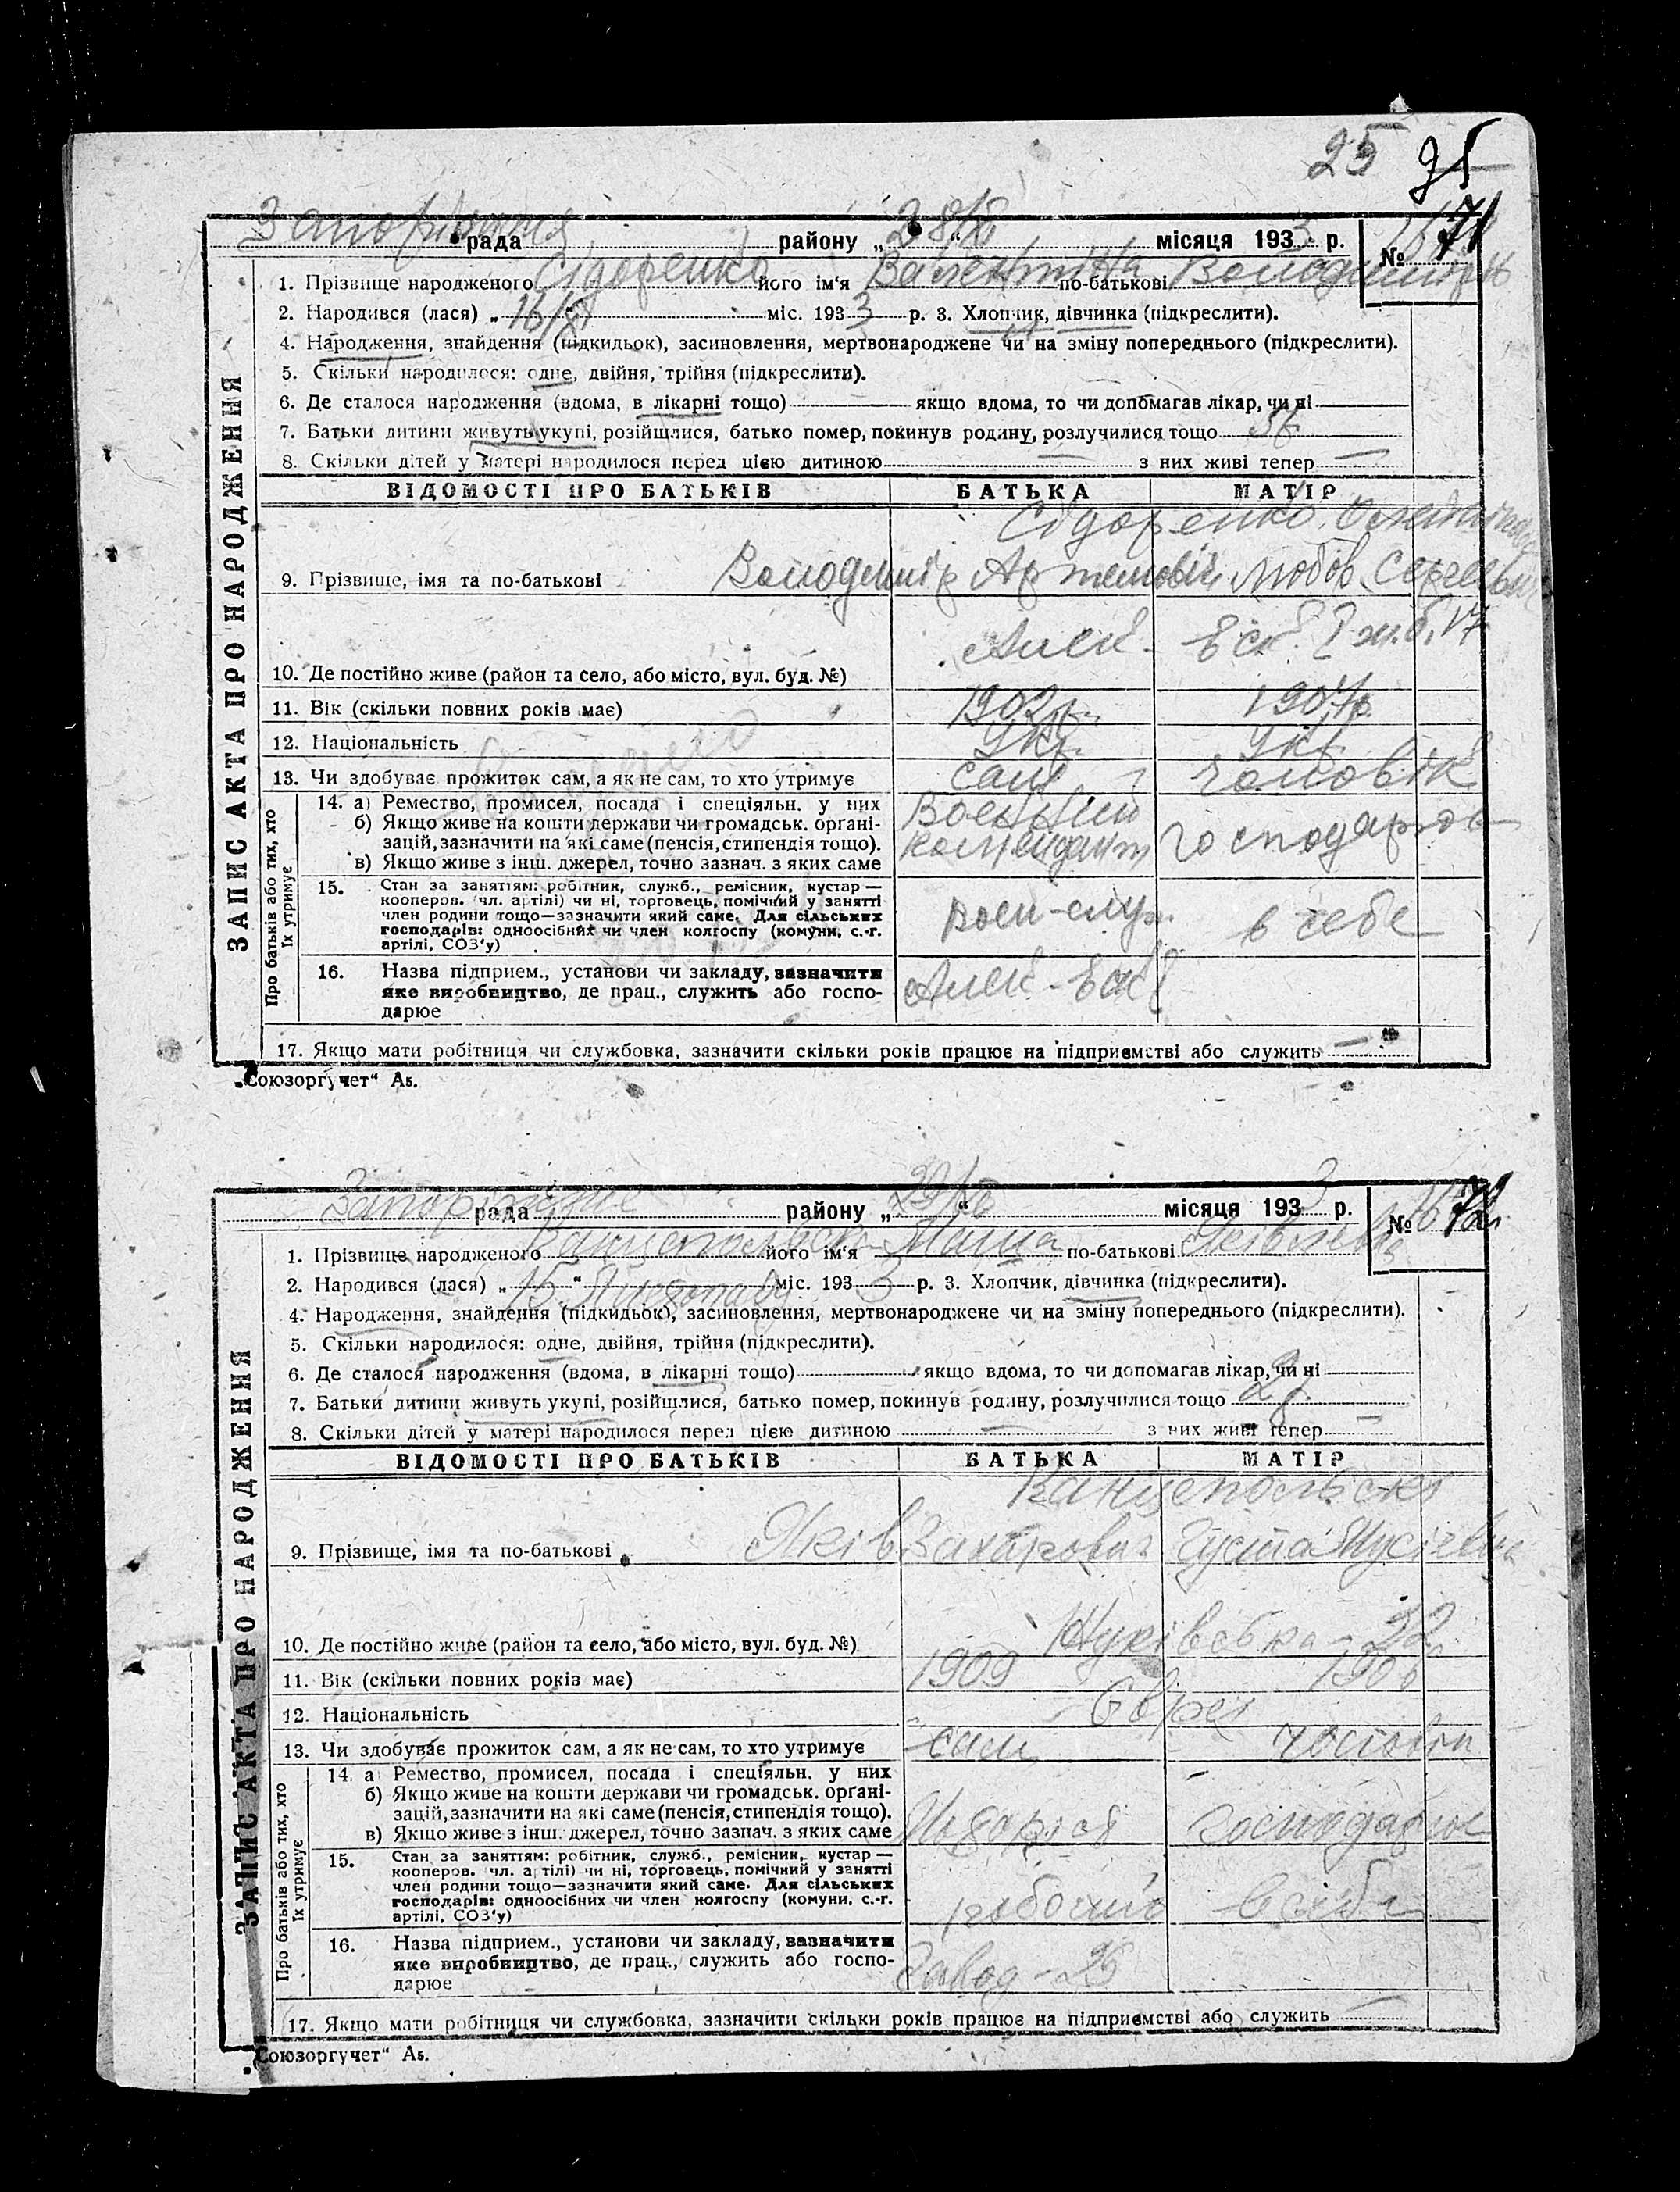 25 25
Запоріжжя рада району „28/XI“ місяця 1933 р. № 71
1. Прізвище народженого Сідоренко його ім‘я Валентіна по-батькові
2. Народився (лася) „16/XI“ міс. 1933 р. 3. Хлопчик, дівчинка (підкреслити).
4. Народження, знайдення (підкидьок), засиновлення, мертвонароджене чи на зміну попереднього (підкреслити).
5. Скільки народилося: одне, двійня, трійня (підкреслити).
6. Де сталося народження (вдома, в лікарні тощо) — якщо вдома, то чи допомагав лікар, чи ні
7. Батьки дитини живуть укупі, розійшлися, батько помер, покинув родину, розлучилися тощо
8. Скільки дітей у матері народилося перед цією дитиною — з них живі тепер —
ВІДОМОСТІ ПРО БАТЬКІВ БАТЬКА МАТІР
Сідоренко
9. Прізвище, імя та по-батькові Володимір Артемовіч Любов Сергеевна
10. Де постійно живе (район та село, або місто, вул. буд. №)
11. Вік (скільки повних років має) 1902р. 1907р.
12. Національність Укр. Укр.
13. Чи здобуває прожиток сам, а як не сам, то хто утримує сам чоловік
14. а) Ремество, промисел, посада і спеціяльн. у них
б) Якщо живе на кошти держави чи громадськ. орґані-
зацій, зазначити на які саме (пенсія, стипендія тощо).
в) Якщо живе з інш. джерел, точно зазнач. з яких саме
Военний комендант
15. Стан за заняттям: робітник, служб., ремісник, кустар —
кооперов. (чл. артілі) чи ні, торговець, помічний у занятті
член родини тощо—зазначити який саме. Для сільських
господарів: одноосібних чи член колгоспу (комуни, с.-г.
артілі, СОЗ‘у)
воен-служ. в себе
16. Назва підприєм., установи чи закладу, зазначити
яке виробництво, де прац., служить або госпо-
дарює
17. Якщо мати робітниця чи службовка, зазначити скільки років працює на підприємстві або служить —
ЗАПИС АКТА ПРО НАРОДЖЕННЯ
Про батьків або тих, хто
їх утримує
„Союзоргучет“ А5.
Запоріжжя рада району місяця 1933 р. № 72
1. Прізвище народженого його ім‘я Маша по-батькові Яківлевна
2. Народився (лася) „15“ Листопада міс. 1933 р. 3. Хлопчик, дівчинка (підкреслити).
4. Народження, знайдення (підкидьок), засиновлення, мертвонароджене чи на зміну попереднього (підкреслити).
5. Скільки народилося: одне, двійня, трійня (підкреслити).
6. Де сталося народження (вдома, в лікарні тощо) якщо вдома, то чи допомагав лікар, чи ні
7. Батьки дитини живуть укупі, розійшлися, батько помер, покинув родину, розлучилися тощо
8. Скільки дітей у матері народилося перед цією дитиною — з них живі тепер
ВІДОМОСТІ ПРО БАТЬКІВ БАТЬКА МАТІР
Канцепольскі
9. Прізвище, імя та по-батькові Яків Захарович Густа
10. Де постійно живе (район та село, або місто, вул. буд. №) 32
11. Вік (скільки повних років має) 1909 1906
12. Національність Євреі
13. Чи здобуває прожиток сам, а як не сам, то хто утримує сам чоловік
14. а) Ремество, промисел, посада і спеціяльн. у них
б) Якщо живе на кошти держави чи громадськ. орґані-
зацій, зазначити на які саме (пенсія, стипендія тощо).
в) Якщо живе з інш. джерел, точно зазнач. з яких саме
господарює
15. Стан за заняттям: робітник, служб., ремісник, кустар —
кооперов. (чл. артілі) чи ні, торговець, помічний у занятті
член родини тощо—зазначити який саме. Для сільських
господарів: одноосібних чи член колгоспу (комуни, с.-г.
артілі, СОЗ‘у)
робочий в себе
16. Назва підприєм., установи чи закладу, зазначити
яке виробництво, де прац., служить або госпо-
дарює
Завод-29
17. Якщо мати робітниця чи службовка, зазначити скільки років працює на підприємстві або служить
ЗАПИС АКТА ПРО НАРОДЖЕННЯ
Про батьків або тих, хто
їх утримує
„Союзоргучет“ А5.